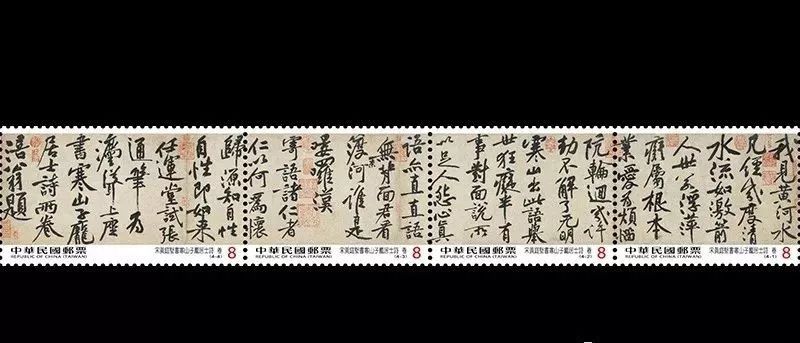 我見黃河水
凡經幾度清
水流如激箭
人世若浮萍
癡屬根本
業愛為煩惱
坑輪迴幾許
劫不解了无明
寒山出此語舉
世狂癡半有
事對面說所
以足人怨心真
語亦直直語
無背面君看
渡奈河誰是
嘍羅漢
寄語諸仁者
仁以何為懷
歸源知自性
自性即如來
任運堂試張
通筆為
灋聳上座
書寒山子龐
居士詩兩卷
涪翁題
中華民國郵票 宋黃庭堅書寒山子龐居士詩 卷 8
REPUBLIC OF CHINA (TAIWAN) (4-4)
中華民國郵票 宋黃庭堅書寒山子龐居士詩 卷 8
REPUBLIC OF CHINA (TAIWAN) (4-3)
中華民國郵票 宋黃庭堅書寒山子龐居士詩 卷 8
REPUBLIC OF CHINA (TAIWAN) (4-2)
中華民國郵票 宋黃庭堅書寒山子龐居士詩 卷 8
REPUBLIC OF CHINA (TAIWAN) (4-1)